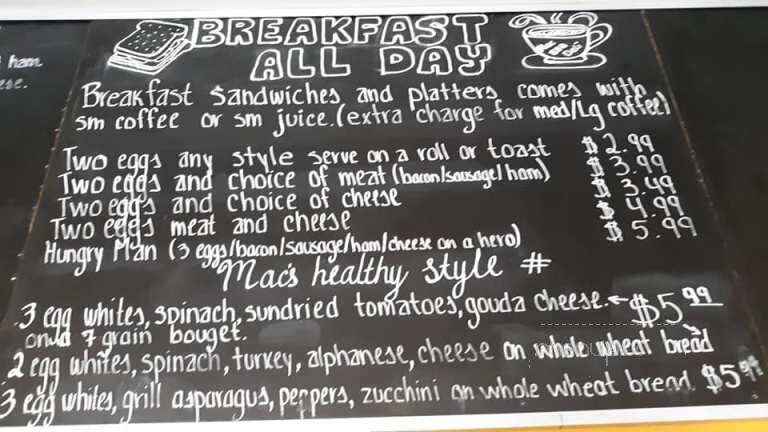 ham.
ese.
BREAKFAST
ALL DAY
Breakfast Sandwiches and platters comes with
sm coffee or sm juice.(extra charge for med/Lg coffee)
Two eggs any style serve on a roll or toast $2.99
Two eggs and choice of meat (bacon/sausage/ham) $3.99
Two eggs and choice of cheese $3.49
Two eggs meat and cheese $4.99
Hungry Man (3 eggs/bacon/sausage/ham/cheese on a hero) $5.99
Mac's healthy style #
3 egg whites, spinach, sundried tomatoes, gouda cheese. $5.99
on a 7 grain bouget.
2 egg whites, spinach, turkey, alphanese, cheese on whole wheat bread
3 egg whites, grill asparagus, peppers, zucchini on whole wheat bread. $5.99